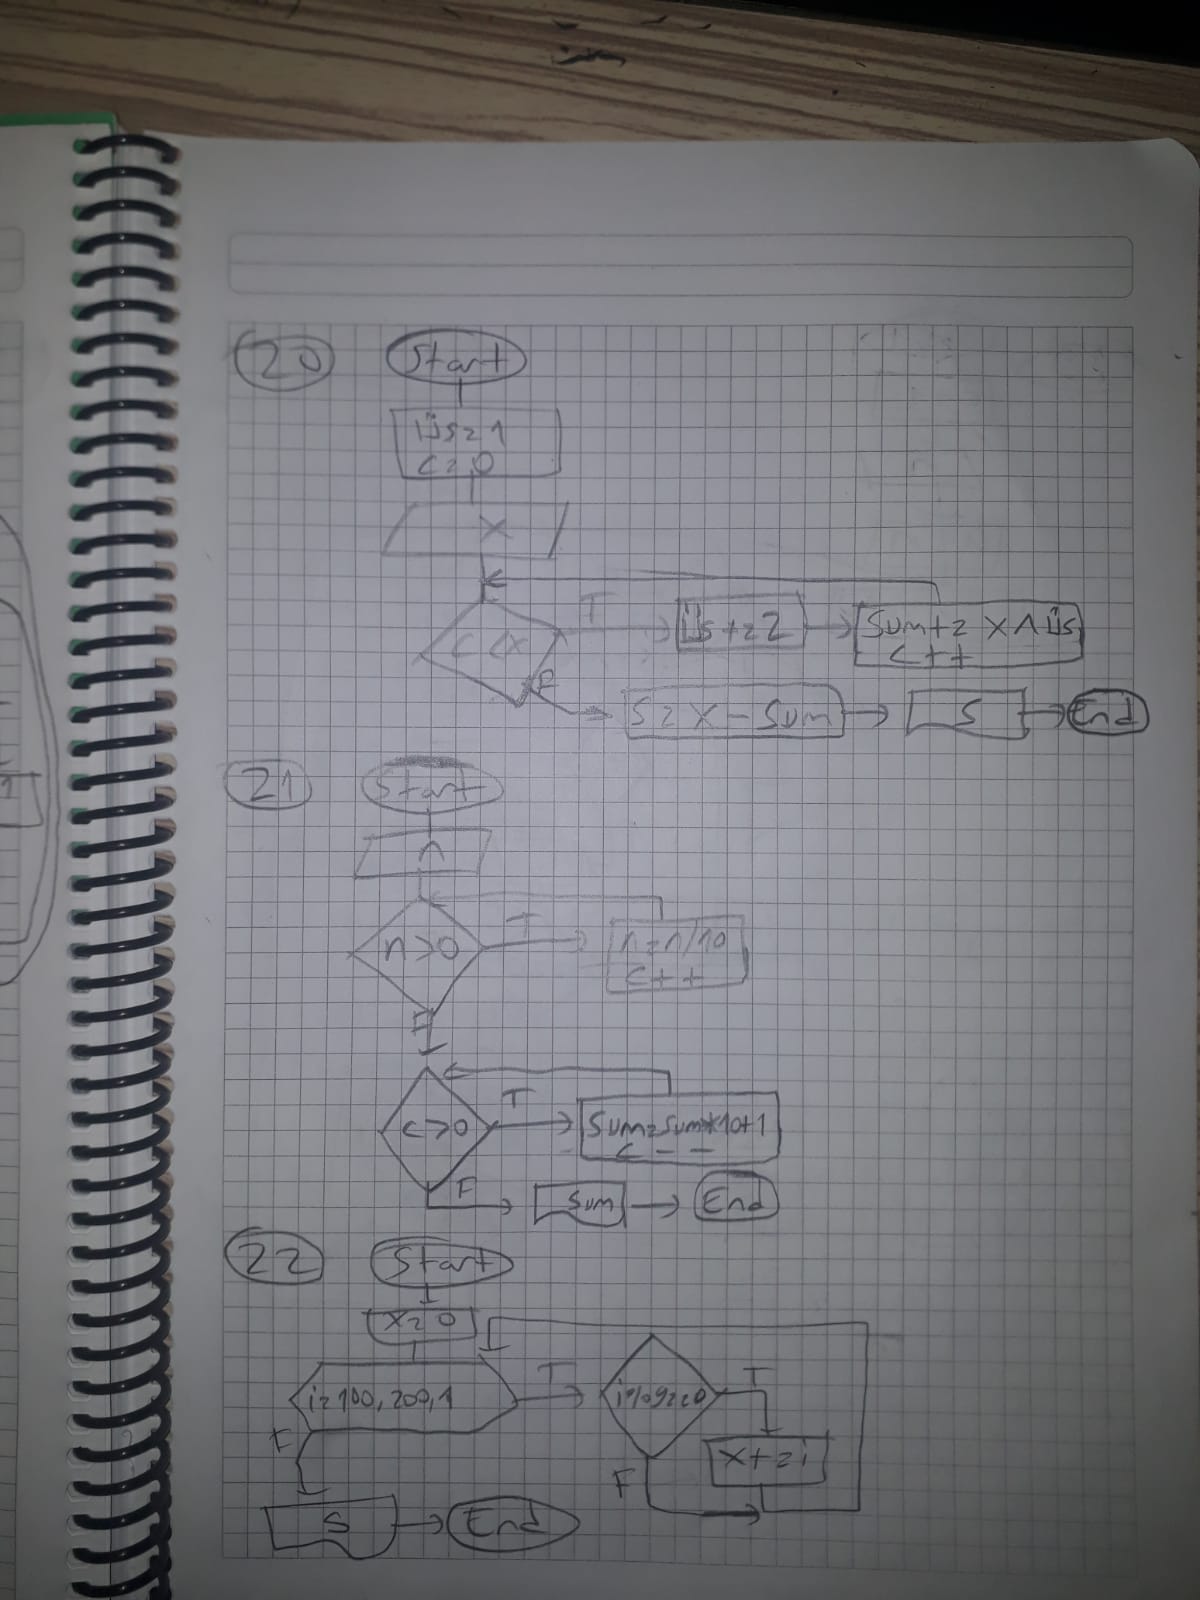 20 Start
Üs=1
c=0
x
c<x T Üs+=2 Sum+= x^Üs
c++
F S=x-Sum S End
21 Start
n
n>0 T n=n/10
c++
F
c>0 T Sum=Sum*10+1
c--
F Sum End
22 Start
x=0
i=100,200,1 T i%9==0 T
F x+=i
F
S End